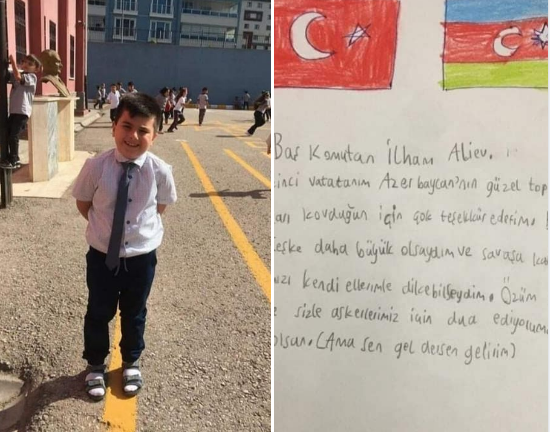 Baş Komutan İlham Aliev.
inci vatatanım Azerbaycan'nın güzel top
arı kovduğun için çok teşekkür ederim.
eşke daha büyük olsaydım ve savaşa ka
ızı kendi ellerimle dikebilseydim. Özüm
sizle askerlerimiz için dua ediyorum
olsun. (Ama sen gel dersen gelirim)